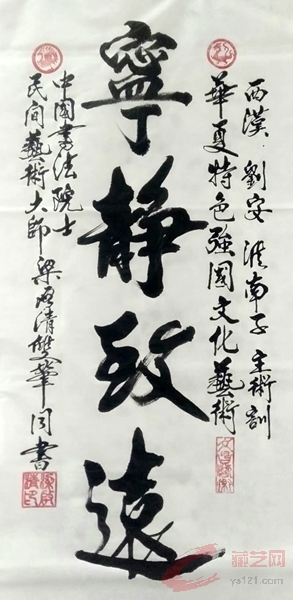 西漢．劉安 淮南子 主術訓
華夏特色強國文化藝術
寧靜致遠
中國書法院士
民间藝術大師梁清雙筆同書
藏艺网
ya121.com